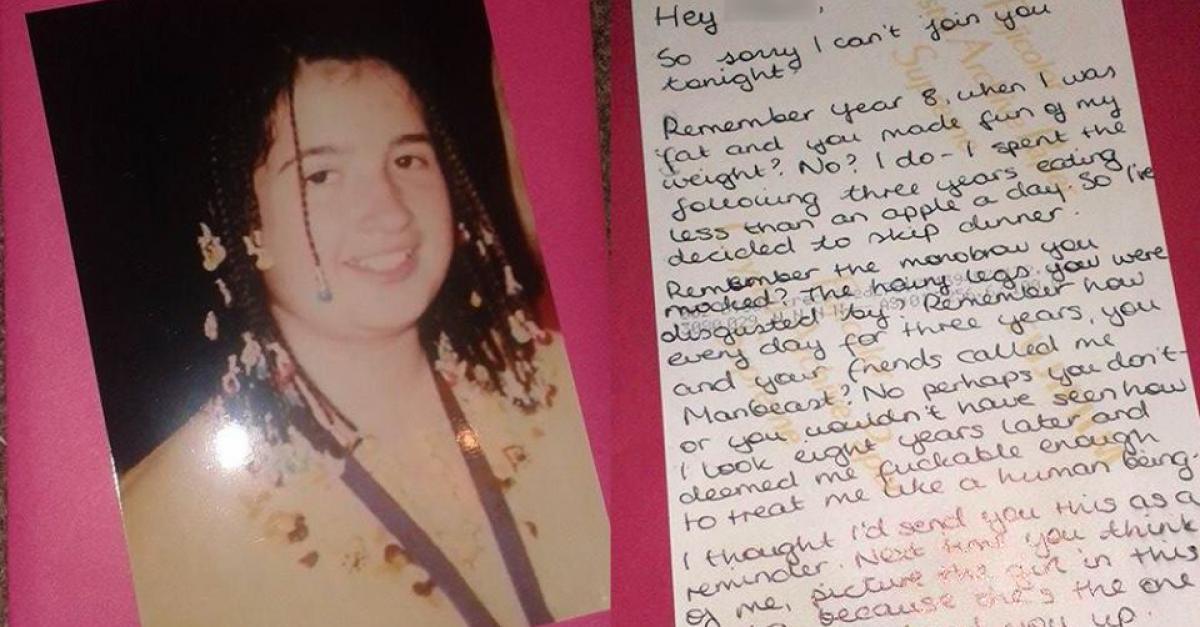 Hey ,
So sorry I can't join you
tonight.
Remember year 8, when I was
fat and you made fun of my
weight? No? I do - I spent the
following three years eating
less than an apple a day. So I've
decided to skip dinner.
Remember the monobrow you
mocked? The hairy legs you were
disgusted by? Remember how
every day for three years, you
and your friends called me
Manbeast? No perhaps you don't-
or you wouldn't have seen how
I look eight years later and
deemed me fuckable enough
to treat me like a human being.
I thought I'd send you this as a
reminder. Next time you think
of me, picture the girl in this
because she's the one
you up.